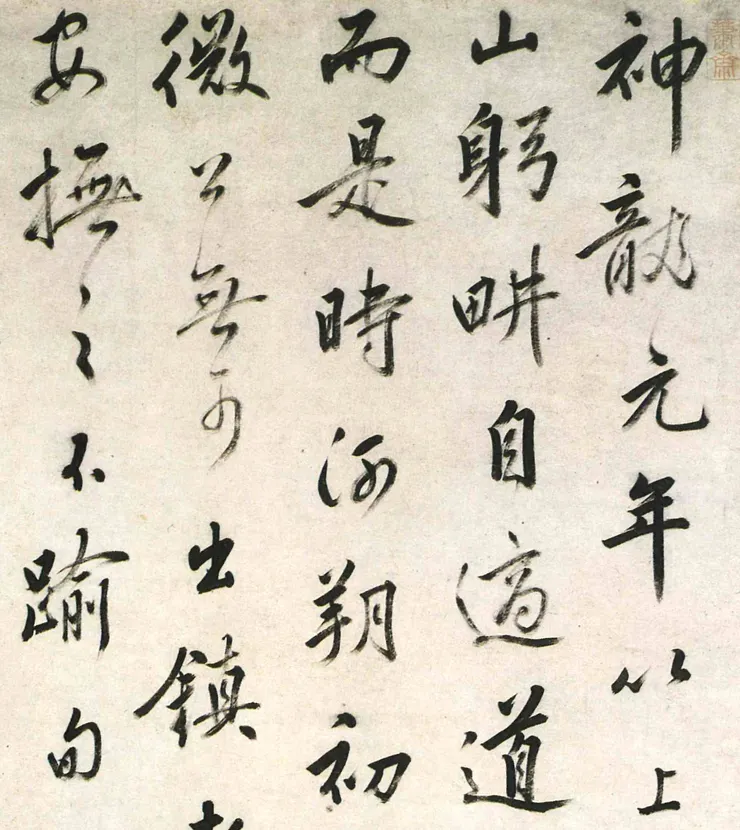 神龍元年以上
山躬畊自適道
而是時河朔初
微公無可出鎮
安撫之不踰旬